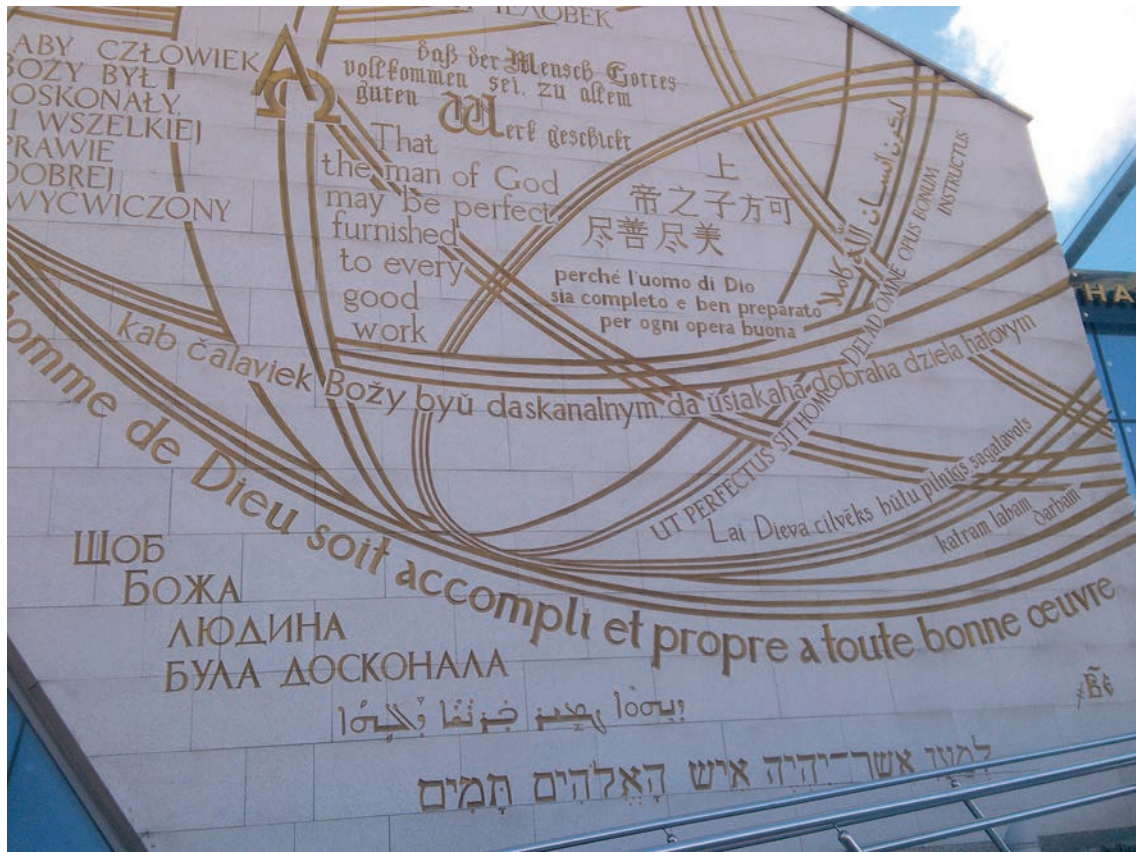 ЧЕЛОВЕК
ABY CZŁOWIEK
BOŻY BYŁ
DOSKONAŁY,
I WSZELKIEJ
PRAWIE
DOBREJ
WYCWICZONY
ΑΩ
daß der Mensch Gottes
vollkommen sei, zu allem
guten Werk geschickt
That
the man of God
may be perfect
furnished
to every
good
work
上
帝之子方可
尽善尽美
perché l'uomo di Dio
sia completo e ben preparato
per ogni opera buona
ليكون إنسان الله كاملا
UT PERFECTUS SIT HOMO DEI, AD OMNE OPUS BONUM
INSTRUCTUS
kab čalaviek Božy byŭ daskanalnym da ŭsiakaha dobraha dziela hatovym
Lai Dieva cilvēks būtu pilnīgs sagatavots
katram labam
darbam
homme de Dieu soit accompli et propre a toute bonne œuvre
ЩОБ
БОЖА
ЛЮДИНА
БУЛА ДОСКОНАЛА
למען אשר־יהיה איש הָאֱלֹהִים תָּמִים
HA